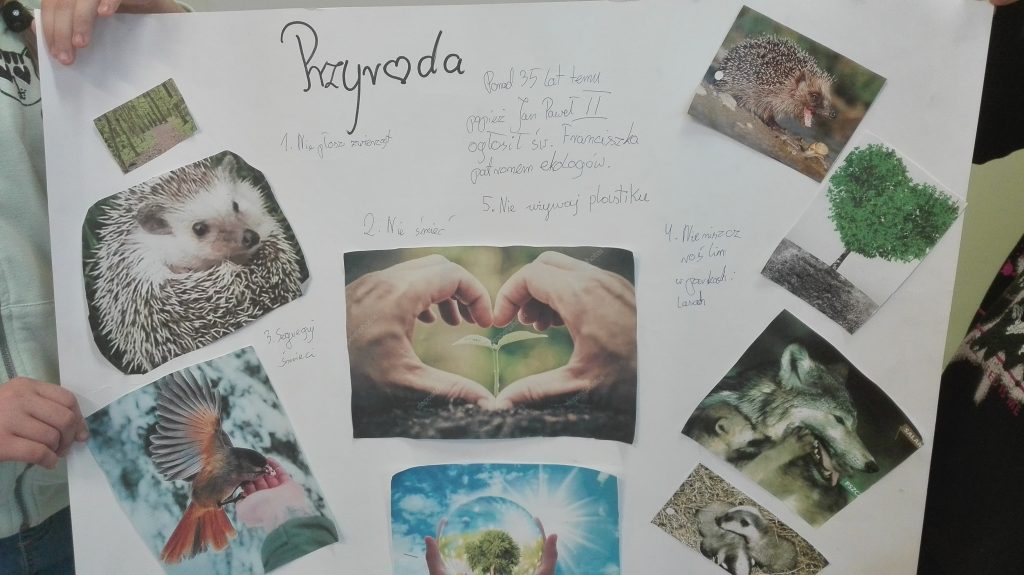 Przyroda
Ponad 35 lat temu
papież Jan Paweł II
ogłosił św. Franciszka
patronem ekologów.
1. Nie głosź zwierząt
2. Nie śmieć
3. Segreguj
śmieci
4. Nie niszcz
roślin
w parkach i
lasach
5. Nie używaj plastiku